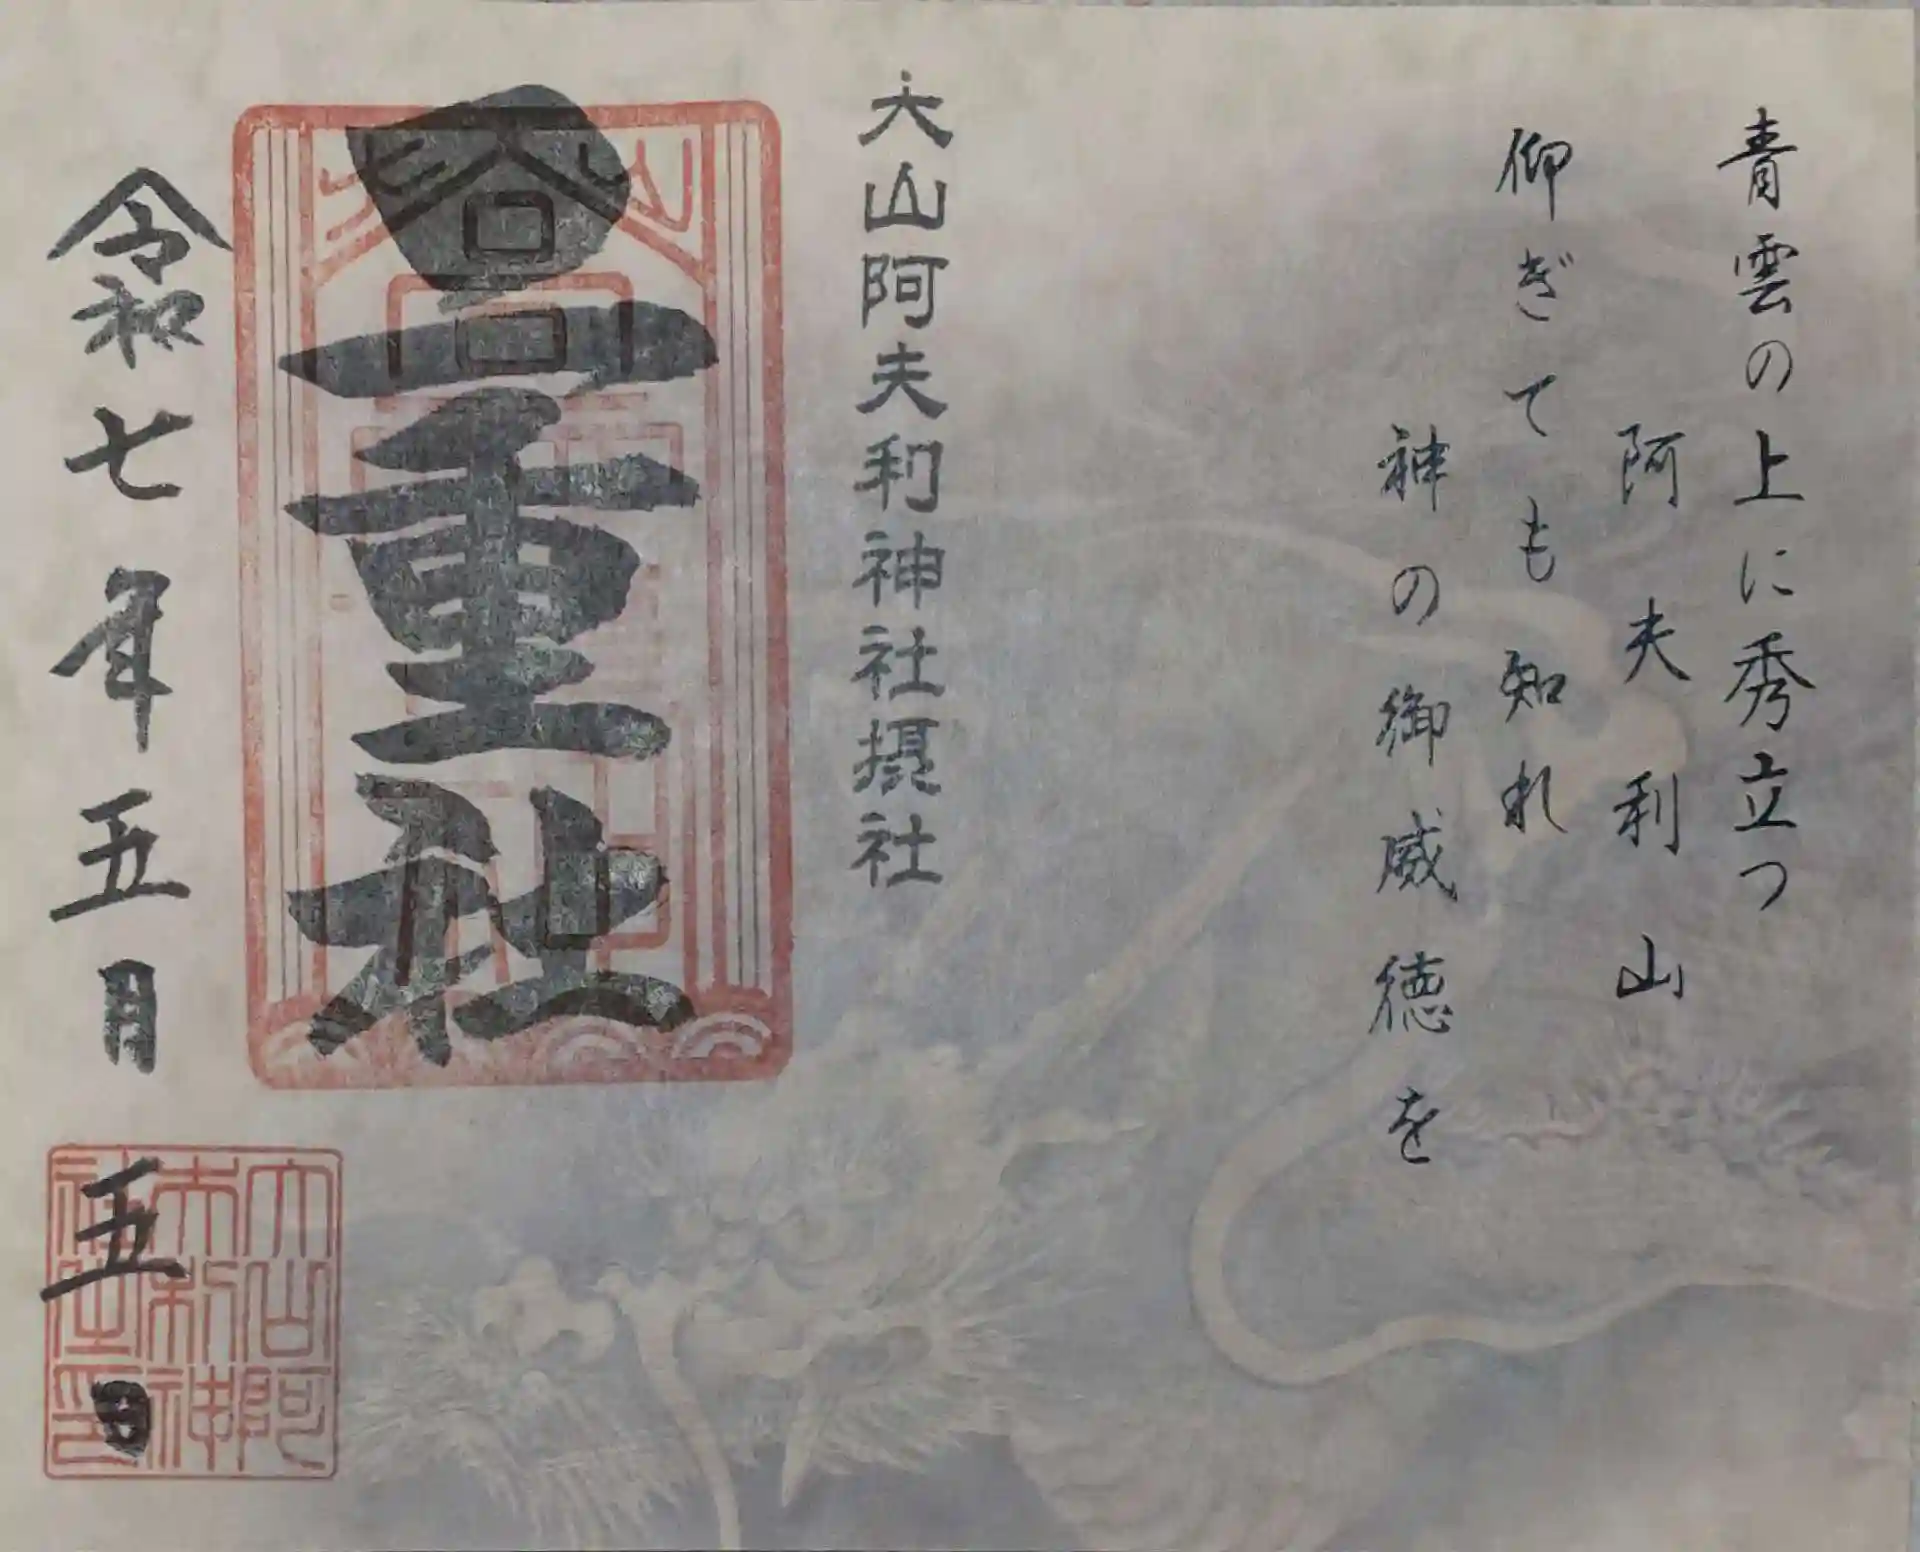 青雲の上に秀立つ
阿夫利山
仰ぎても知れ
神の御威徳を
大山阿夫利神社摂社
二重社
令和七年五月
五日
大山阿
夫利神
社之印